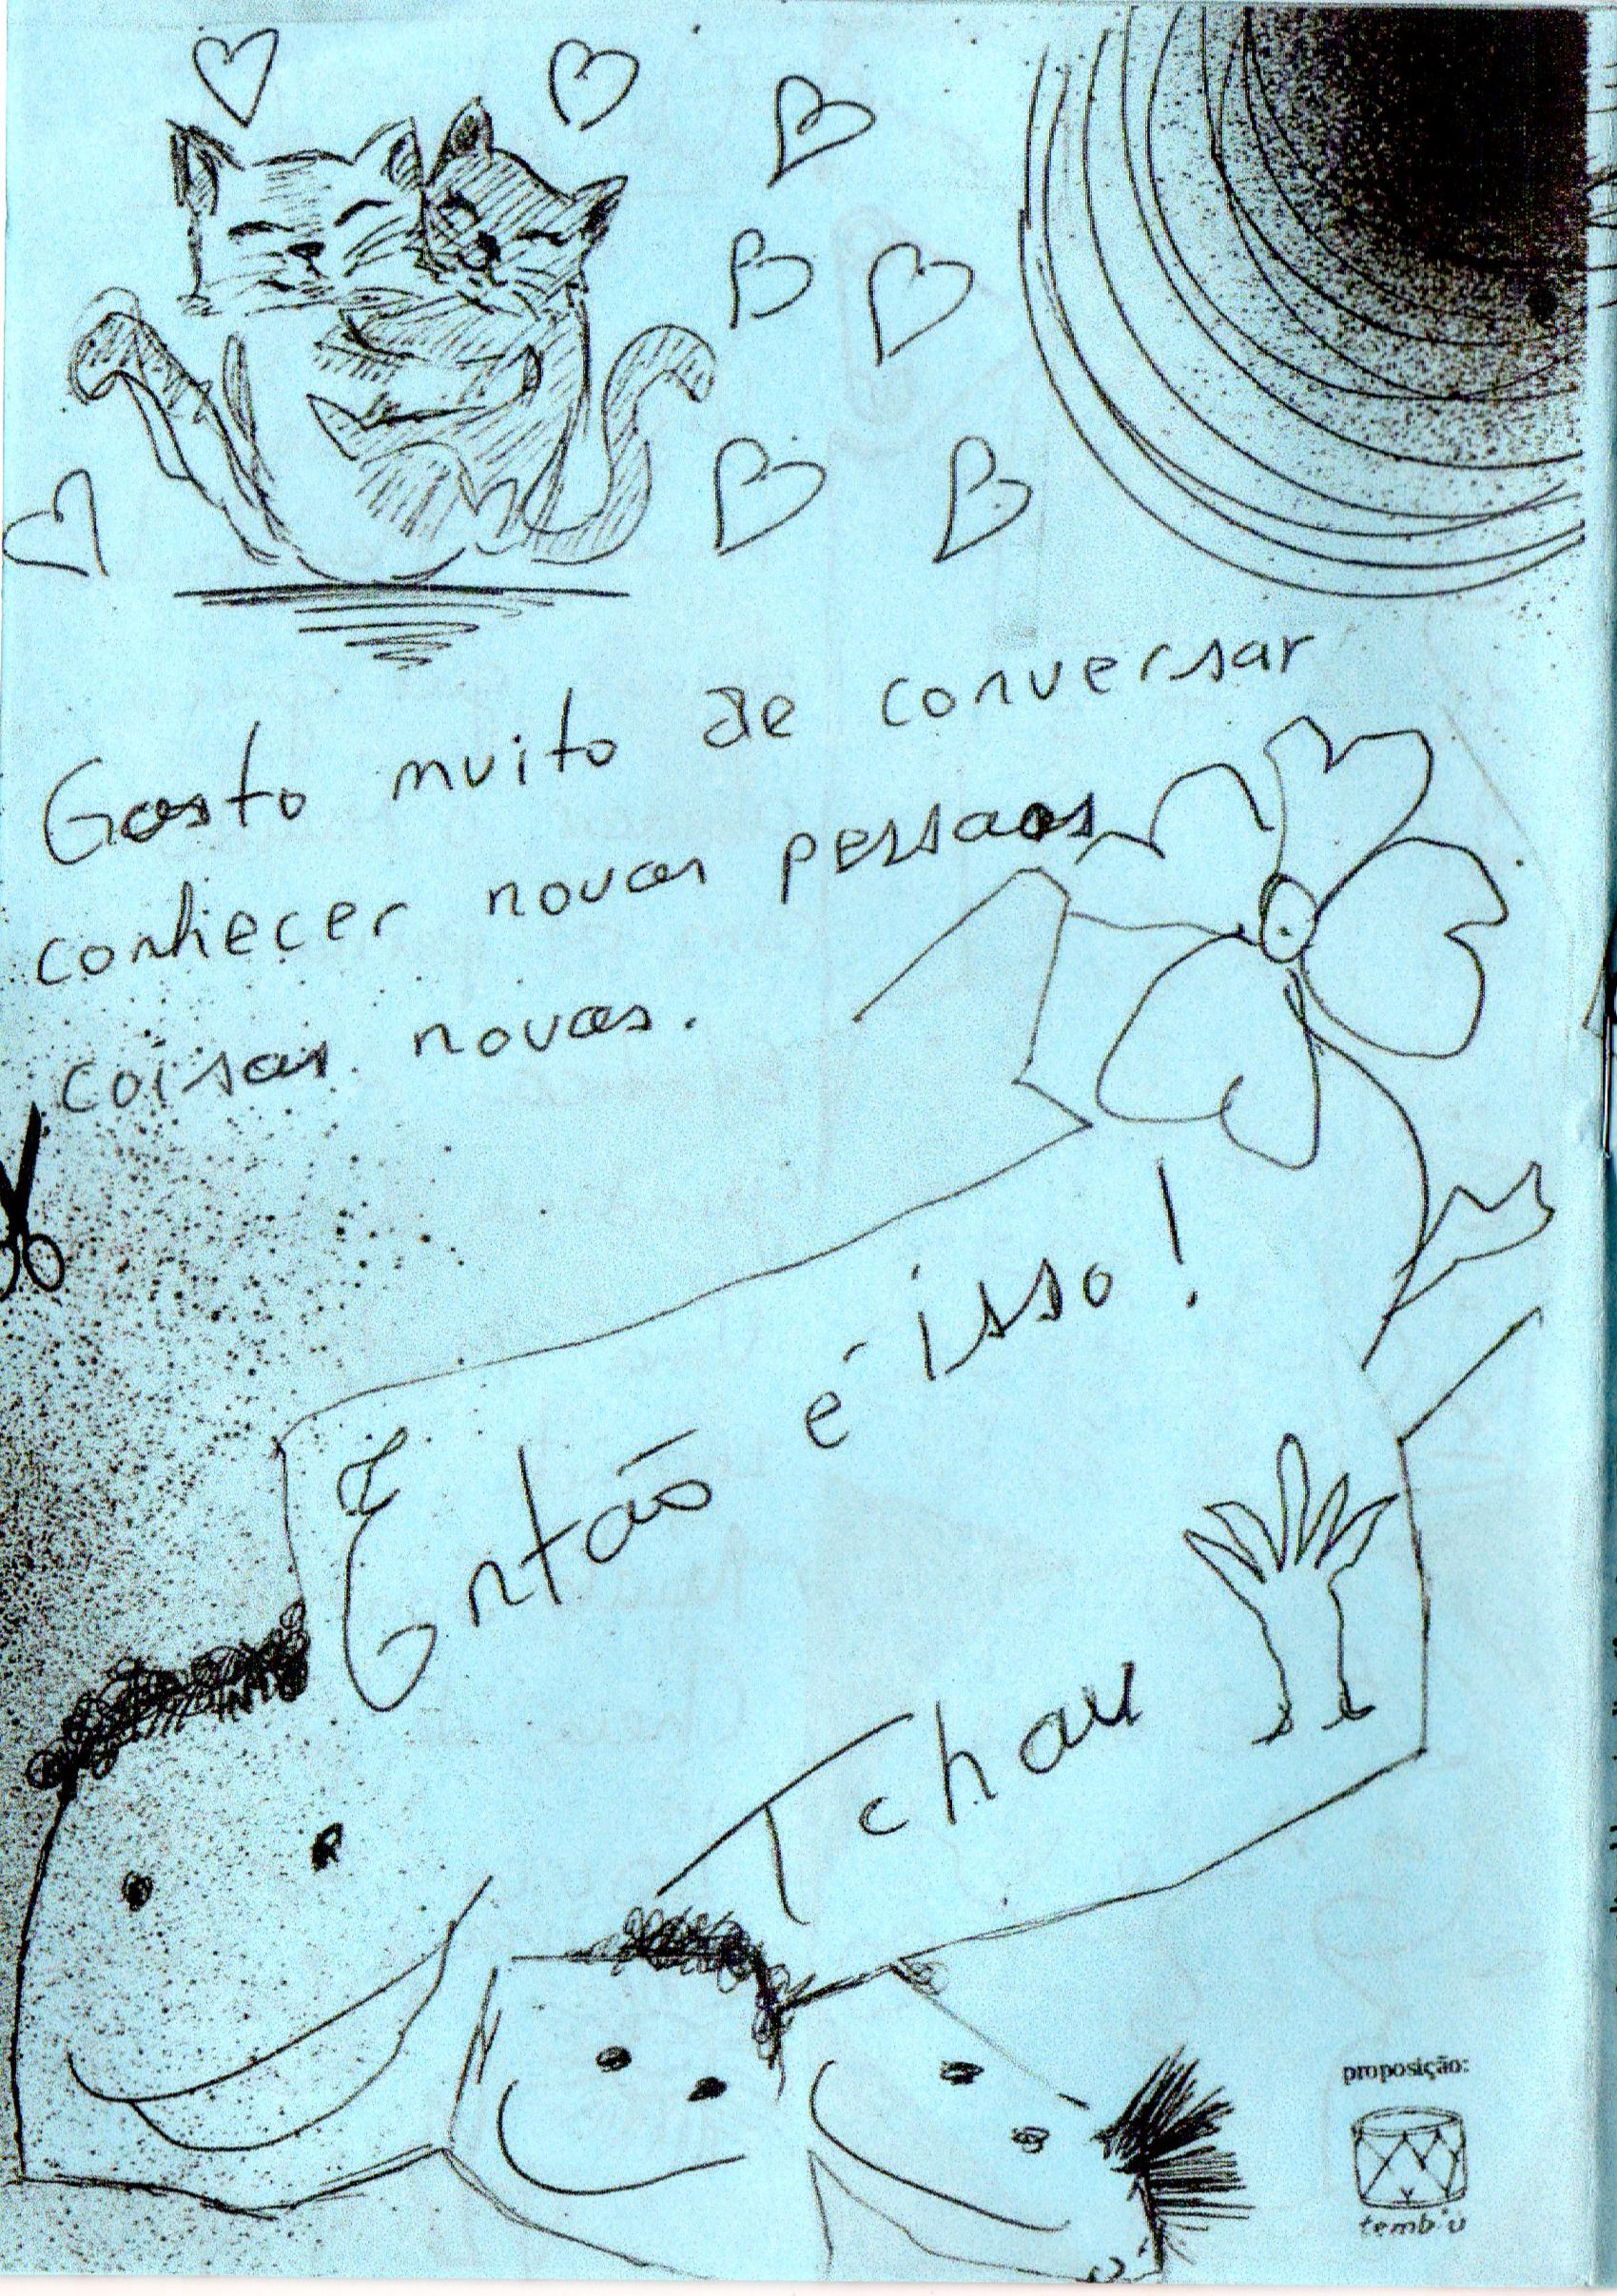 Gosto muito de conversar
conhecer novas pessoas
coisas novas.
Então é isso!
Tchau
proposição:
temb'u